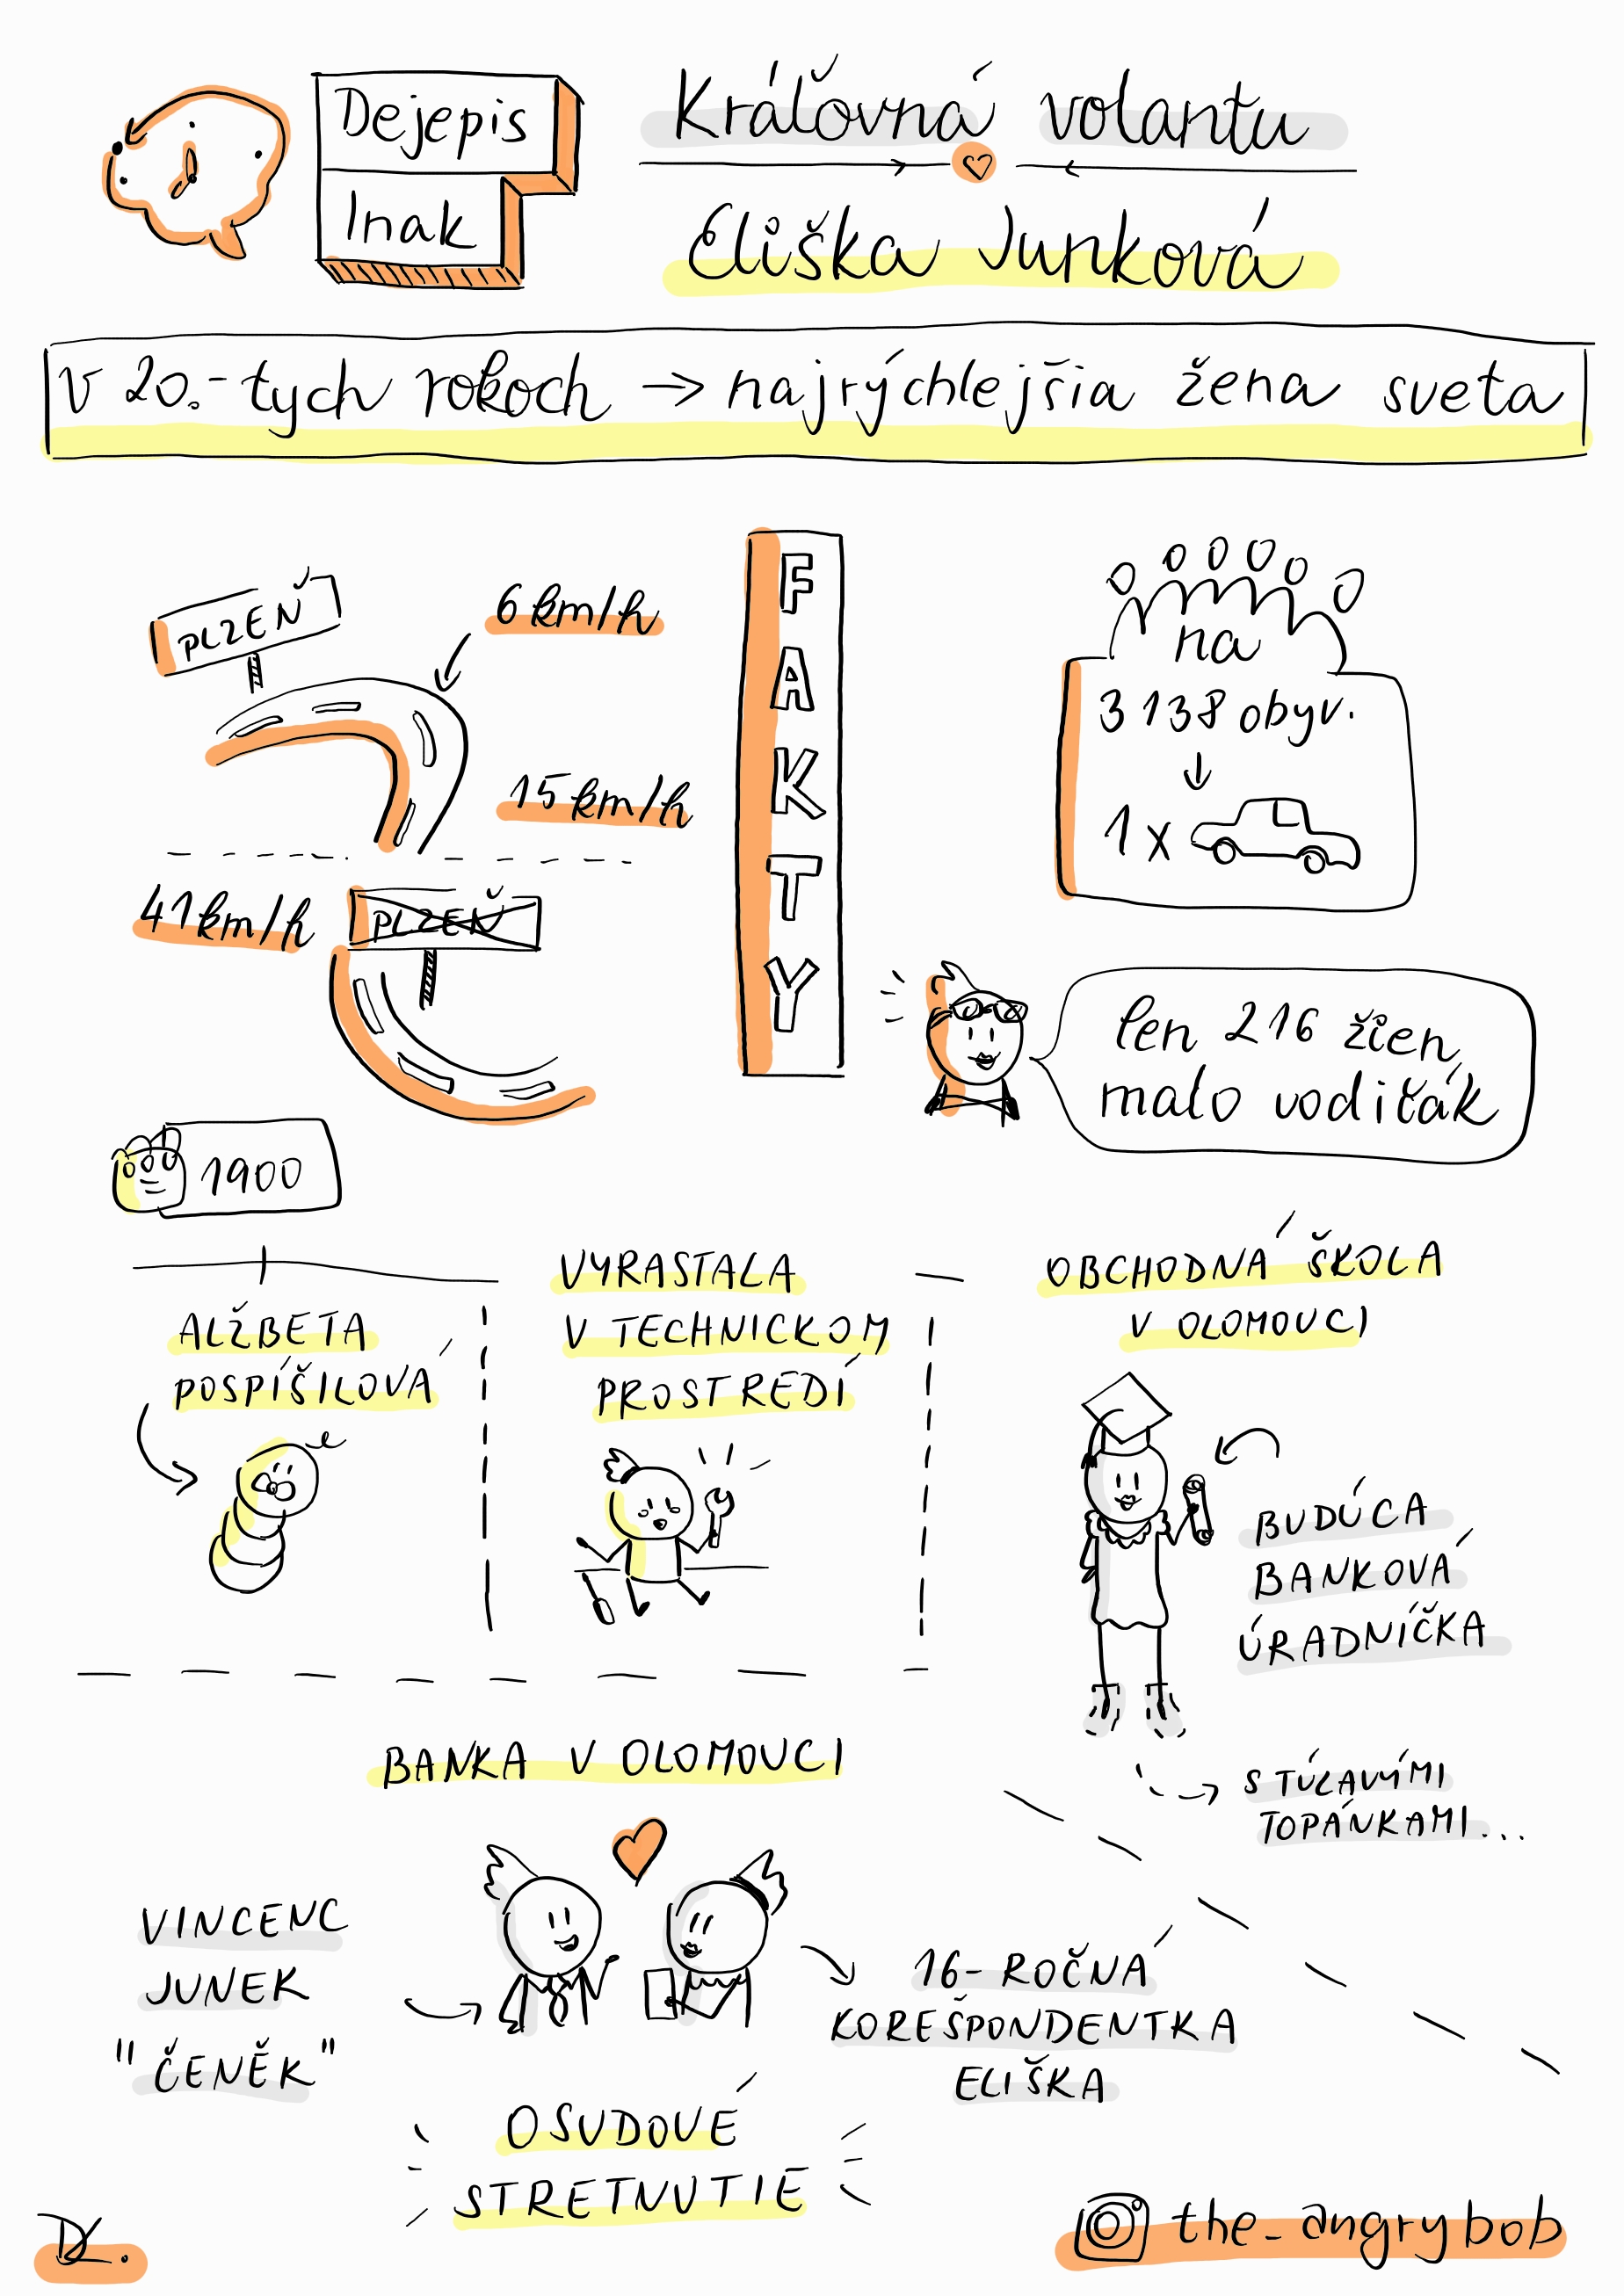 Dejepis
Inak
Kráľovná volantu
Eliška Junková
V 20.-tych rokoch → najrýchlejšia žena sveta
PLZEŇ
6 km/h
15 km/h
41 km/h
PLZEŇ
FAKTY
na
3 138 obyv.
1 x
len 216 žien
malo vodičák
1900
ALŽBETA
POSPÍŠILOVÁ
VYRASTALA
V TECHNICKOM
PROSTREDÍ
OBCHODNÁ ŠKOLA
V OLOMOUCI
BUDÚCA
BANKOVÁ
ÚRADNÍČKA
S TÚLAVÝMI
TOPÁNKAMI...
BANKA V OLOMOUCI
VINCENC
JUNEK
"ČENĚK"
16-ROČNÁ
KOREŠPONDENTKA
ELIŠKA
OSUDOVÉ
STRETNUTIE
DK.
the_angrybob